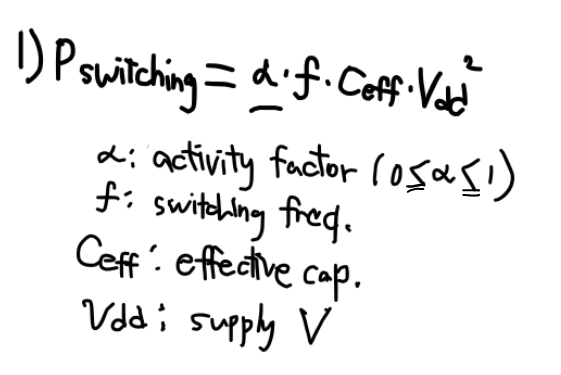 1) Pswitching = α·f·Ceff·Vdd²
α: activity factor (0≤α≤1)
f: switching freq.
Ceff: effective cap.
Vdd: supply V